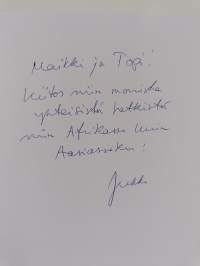 Maikki ja Topi!
Kiitos niin monista
yhteisistä hetkistä
niin Afrikassa kuin
Aasiassakin!
Jukka